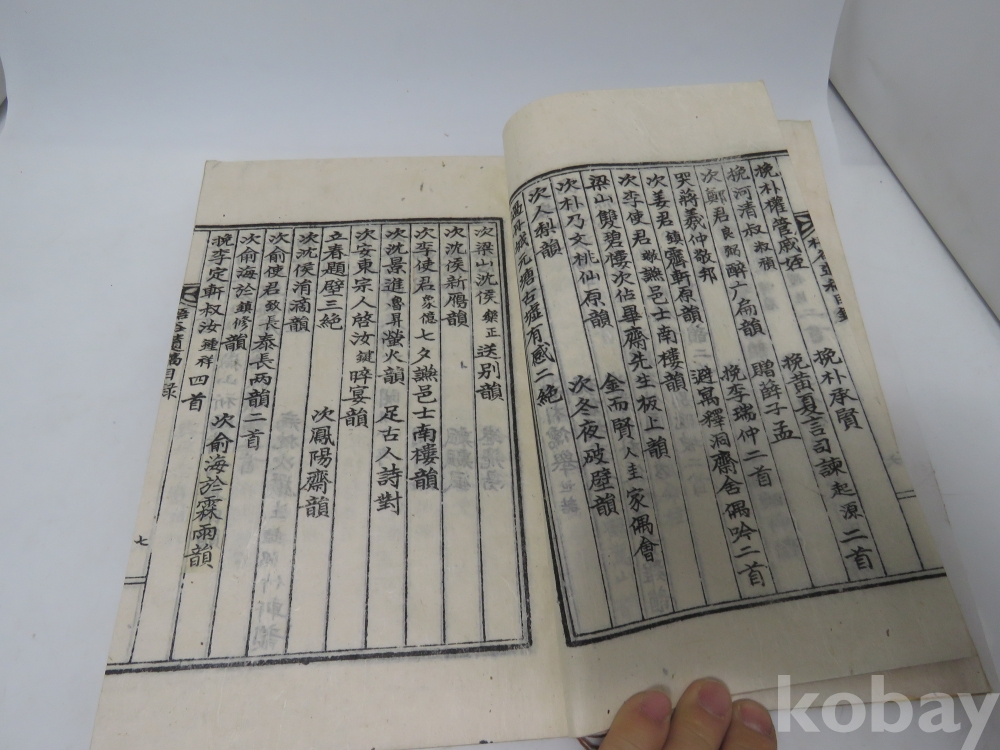 挽朴權管成姬 挽朴承賢
挽河清叔叔稹 挽黃夏言司諫起源二首
次鄭君良弼醉广扁韻 贈薛子孟
哭蔣義仲敬邦 挽李瑞仲二首
次姜君鎮霽軒原韻 避寓釋洞齋舍偶吟二首
次李使君讌邑士南樓韻
梁山雙碧樓次佔畢齋先生板上韻
次朴乃文桃仙原韻 金而賢人圭家偶會
次人梨韻 次冬夜破壁韻
元塘古墟有感二絶
次梁山沈侯樂正送別韻
次沈侯新鴈韻
次李使君眾億七夕讌邑士南樓韻
次沈景進魯昇螢火韻 足古人詩對
次安東宗人啓汝鍵晬宴韻
立春題壁三絶
次沈侯涓滴韻 次鳳陽齋韻
次俞使君致長泰長兩韻二首
次俞海於鎮修韻
挽李定軒叔汝鍾祥四首 次俞海於霖雨韻
目錄
七
kobay